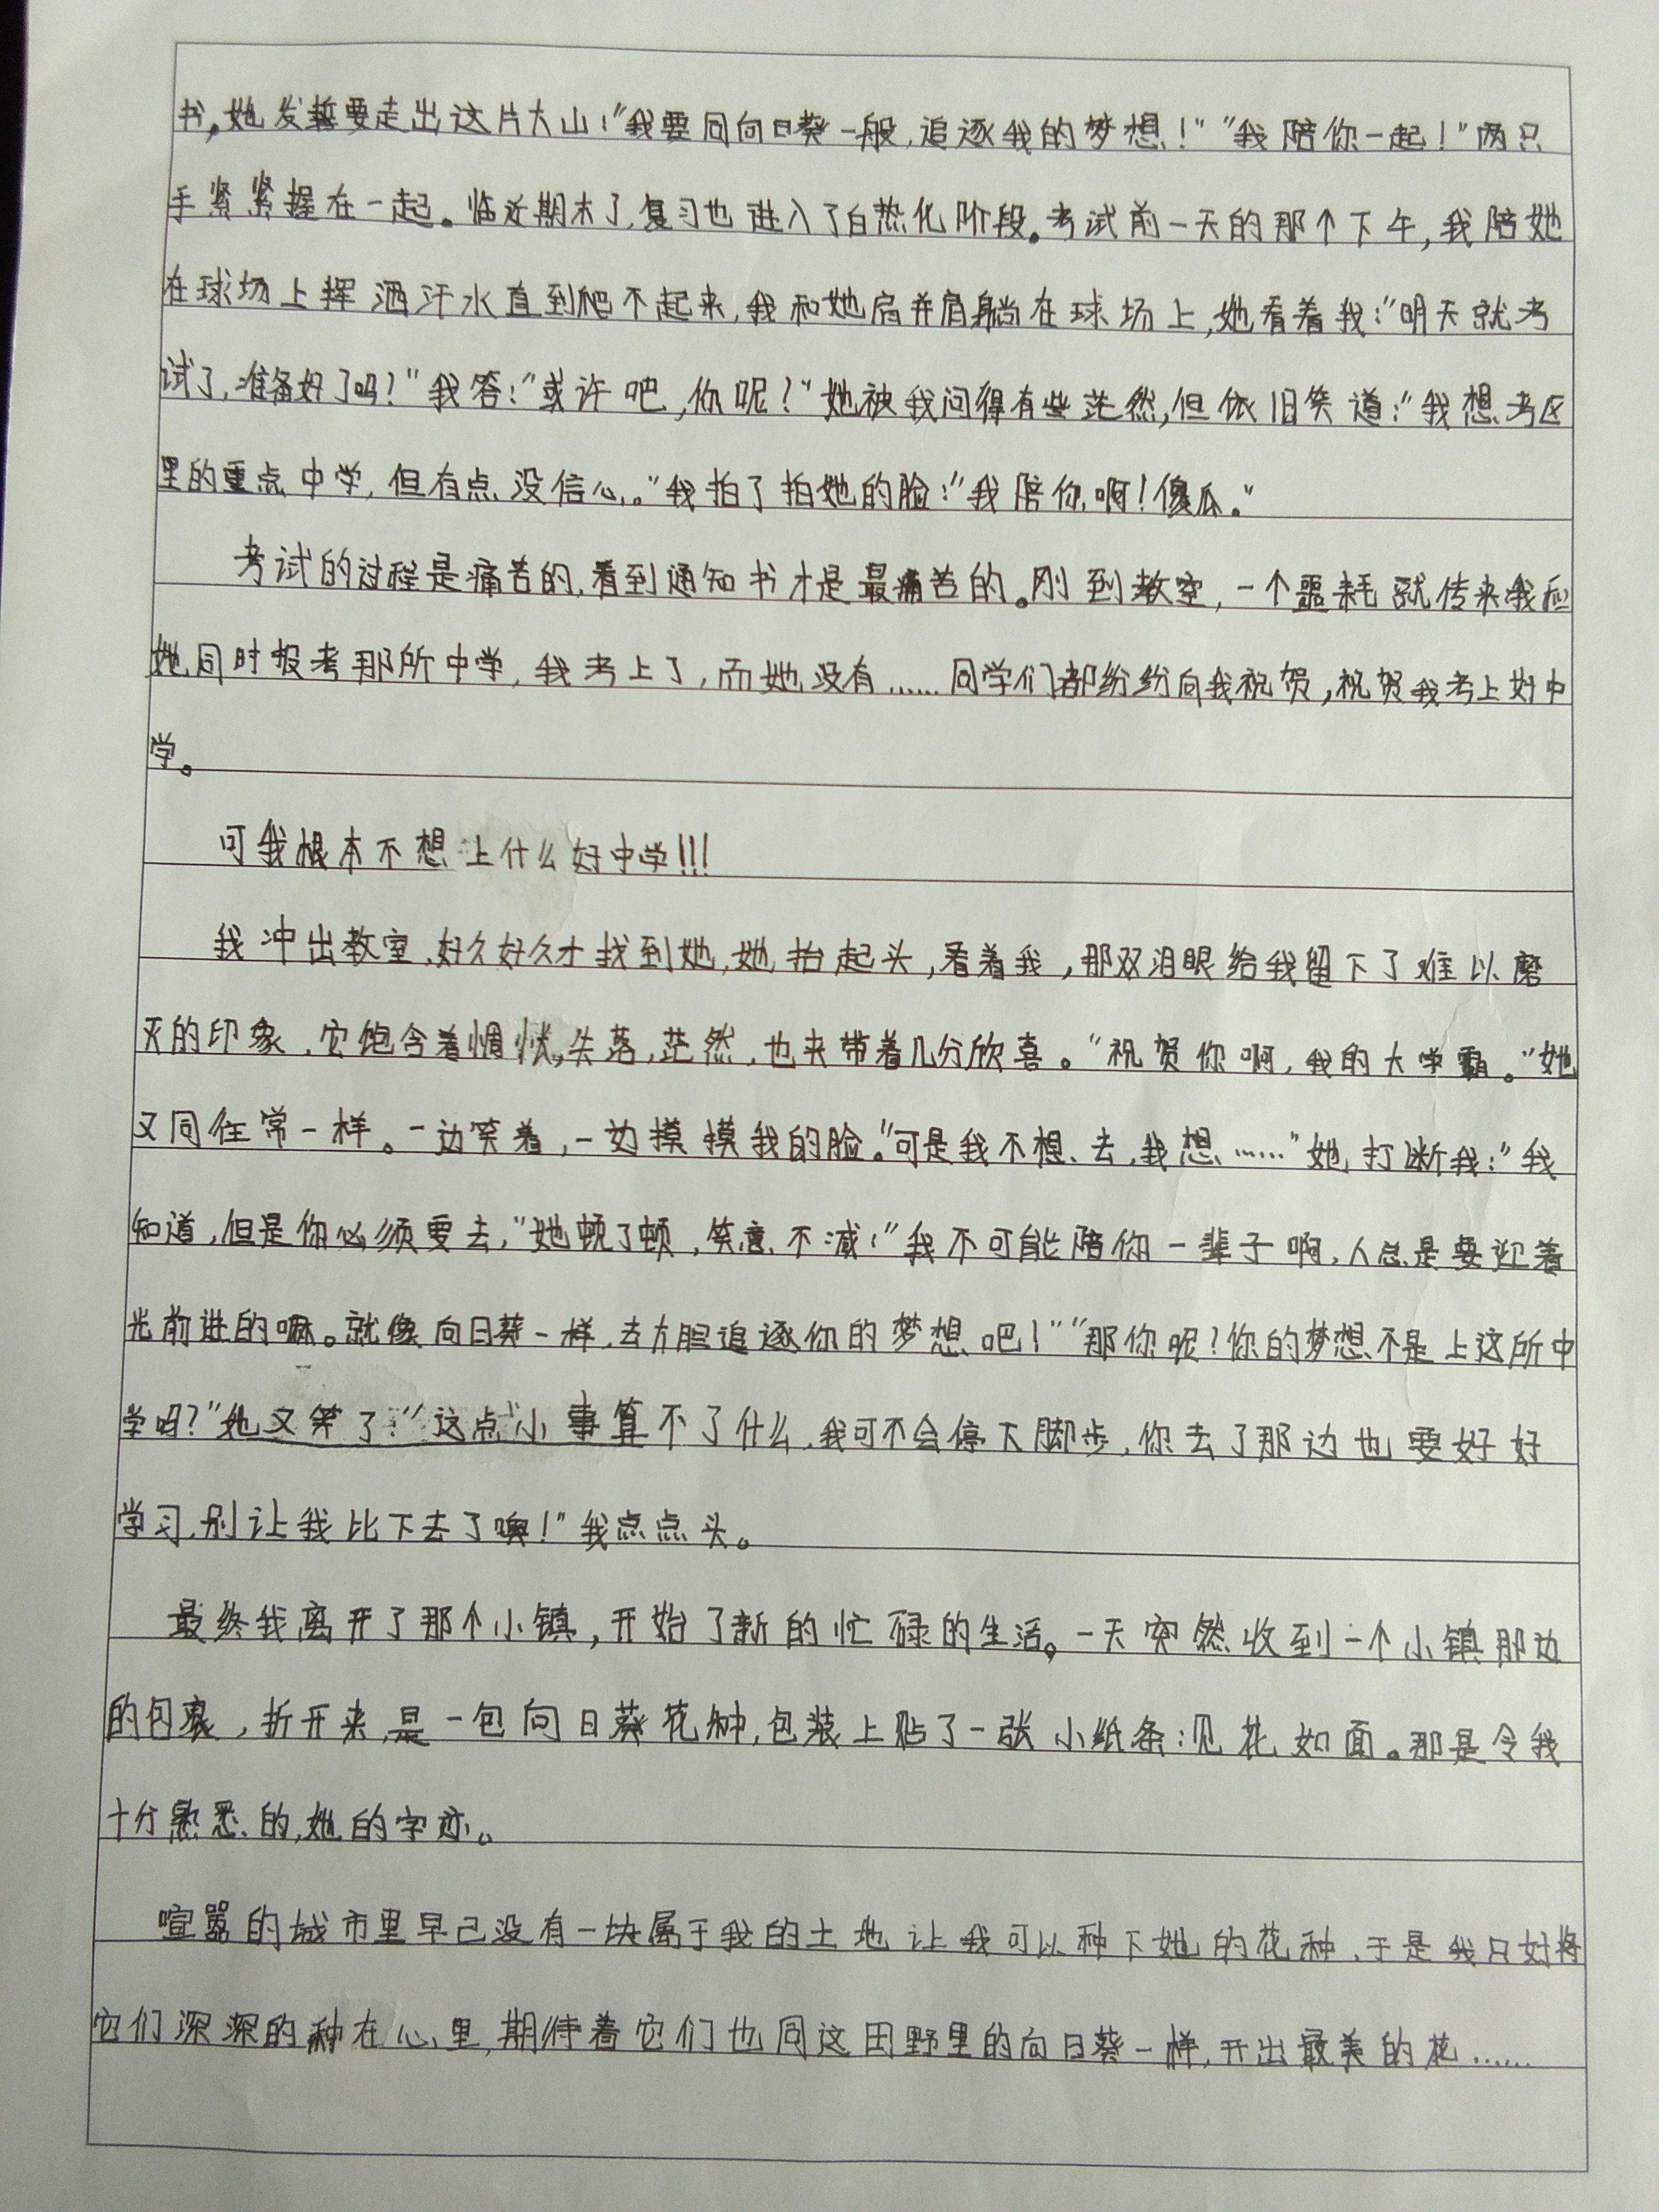 书,她发誓要走出这片大山!"我要同向日葵一般,追逐我的梦想!""我陪你一起!"两只
手紧紧握在一起。临近期末了,复习也进入了白热化阶段。考试前一天的那个下午,我陪她
在球场上挥洒汗水直到爬不起来,我和她肩并肩躺在球场上,她看着我:"明天就考
试了,准备好了吗?"我答:"或许吧,你呢?"她被我问得有些茫然,但依旧笑道:"我想考区
里的重点中学,但有点没信心。"我拍了拍她的脸:"我陪你啊!傻瓜。"
考试的过程是痛苦的,看到通知书才是最痛苦的。刚到教室,一个噩耗就传来我和
她同时报考那所中学,我考上了,而她没有……同学们都纷纷向我祝贺,祝贺我考上好中
学。
可我根本不想上什么好中学!!!
我冲出教室,好久好久才找到她,她抬起头,看着我,那双泪眼给我留下了难以磨
灭的印象,它饱含着惆怅,失落,茫然,也夹带着几分欣喜。"祝贺你啊,我的大学霸。"她
又同往常一样。一边笑着,一边摸摸我的脸。"可是我不想去,我想……"她打断我:"我
知道,但是你必须要去,"她顿了顿,笑意不减:"我不可能陪你一辈子啊,人总是要迎着
光前进的嘛。就像向日葵一样,去大胆追逐你的梦想吧!""那你呢!你的梦想不是上这所中
学吗?"她又笑了:"这点小事算不了什么,我可不会停下脚步,你去了那边也要好好
学习,别让我比下去了噢!"我点点头。
最终我离开了那个小镇,开始了新的忙碌的生活。一天突然收到一个小镇那边
的包裹,折开来,是一包向日葵花种,包装上贴了一张小纸条:见花如面。那是令我
十分熟悉的,她的字迹。
喧嚣的城市里早已没有一块属于我的土地让我可以种下她的花种,于是我只好将
它们深深的种在心里,期待着它们也同这田野里的向日葵一样,开出最美的花……